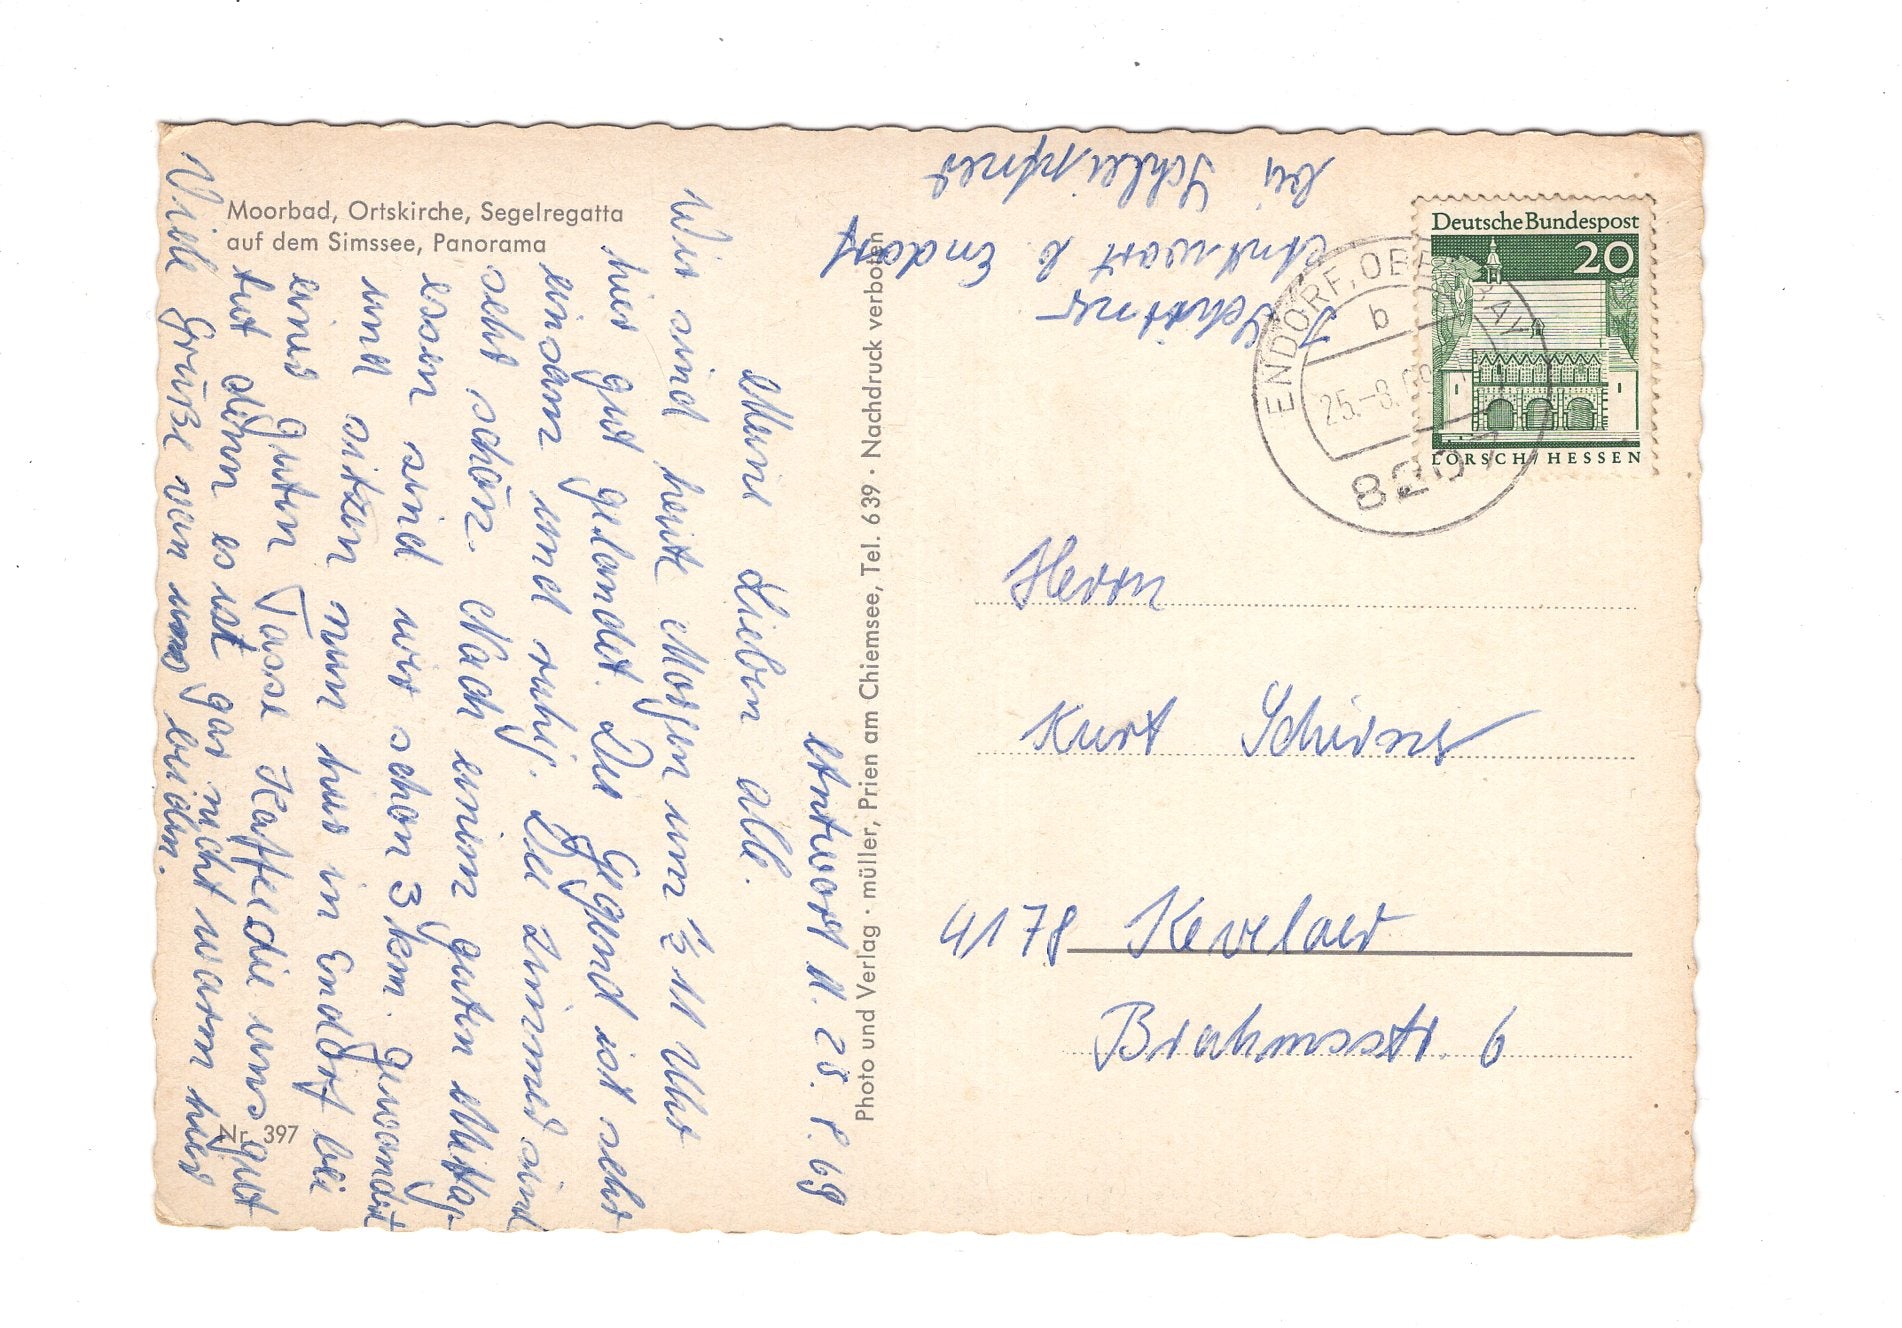 Moorbad, Ortskirche, Segelregatta
auf dem Simssee, Panorama
Nr. 397
Photo und Verlag · müller, Prien am Chiemsee, Tel. 639 · Nachdruck verboten
Antwort, 25. 8. 69
Meine Lieben alle.
Wir sind heute Morgen um ½ 11 Uhr
hier gut gelandet. Die Gegend ist sehr
einsam und ruhig. Die Zimmer sind
sehr schön. Nach einem guten Mittag-
essen sind wir schon 3 km. gewandert
und sitzen nun hier in Endorf bei
einer guten Tasse Kaffee die uns gut
tut denn es ist gar nicht warm hier
Viele Grüße von uns beiden.
Schirner
Antwort b. Endorf
bei Schleipfner
Deutsche Bundespost
20
LORSCH/HESSEN
ENDORF, OBERBAY
b
25.-8.69
8207
Herrn
Kurt Schirner
4178 Kevelaer
Brahmsstr. 6